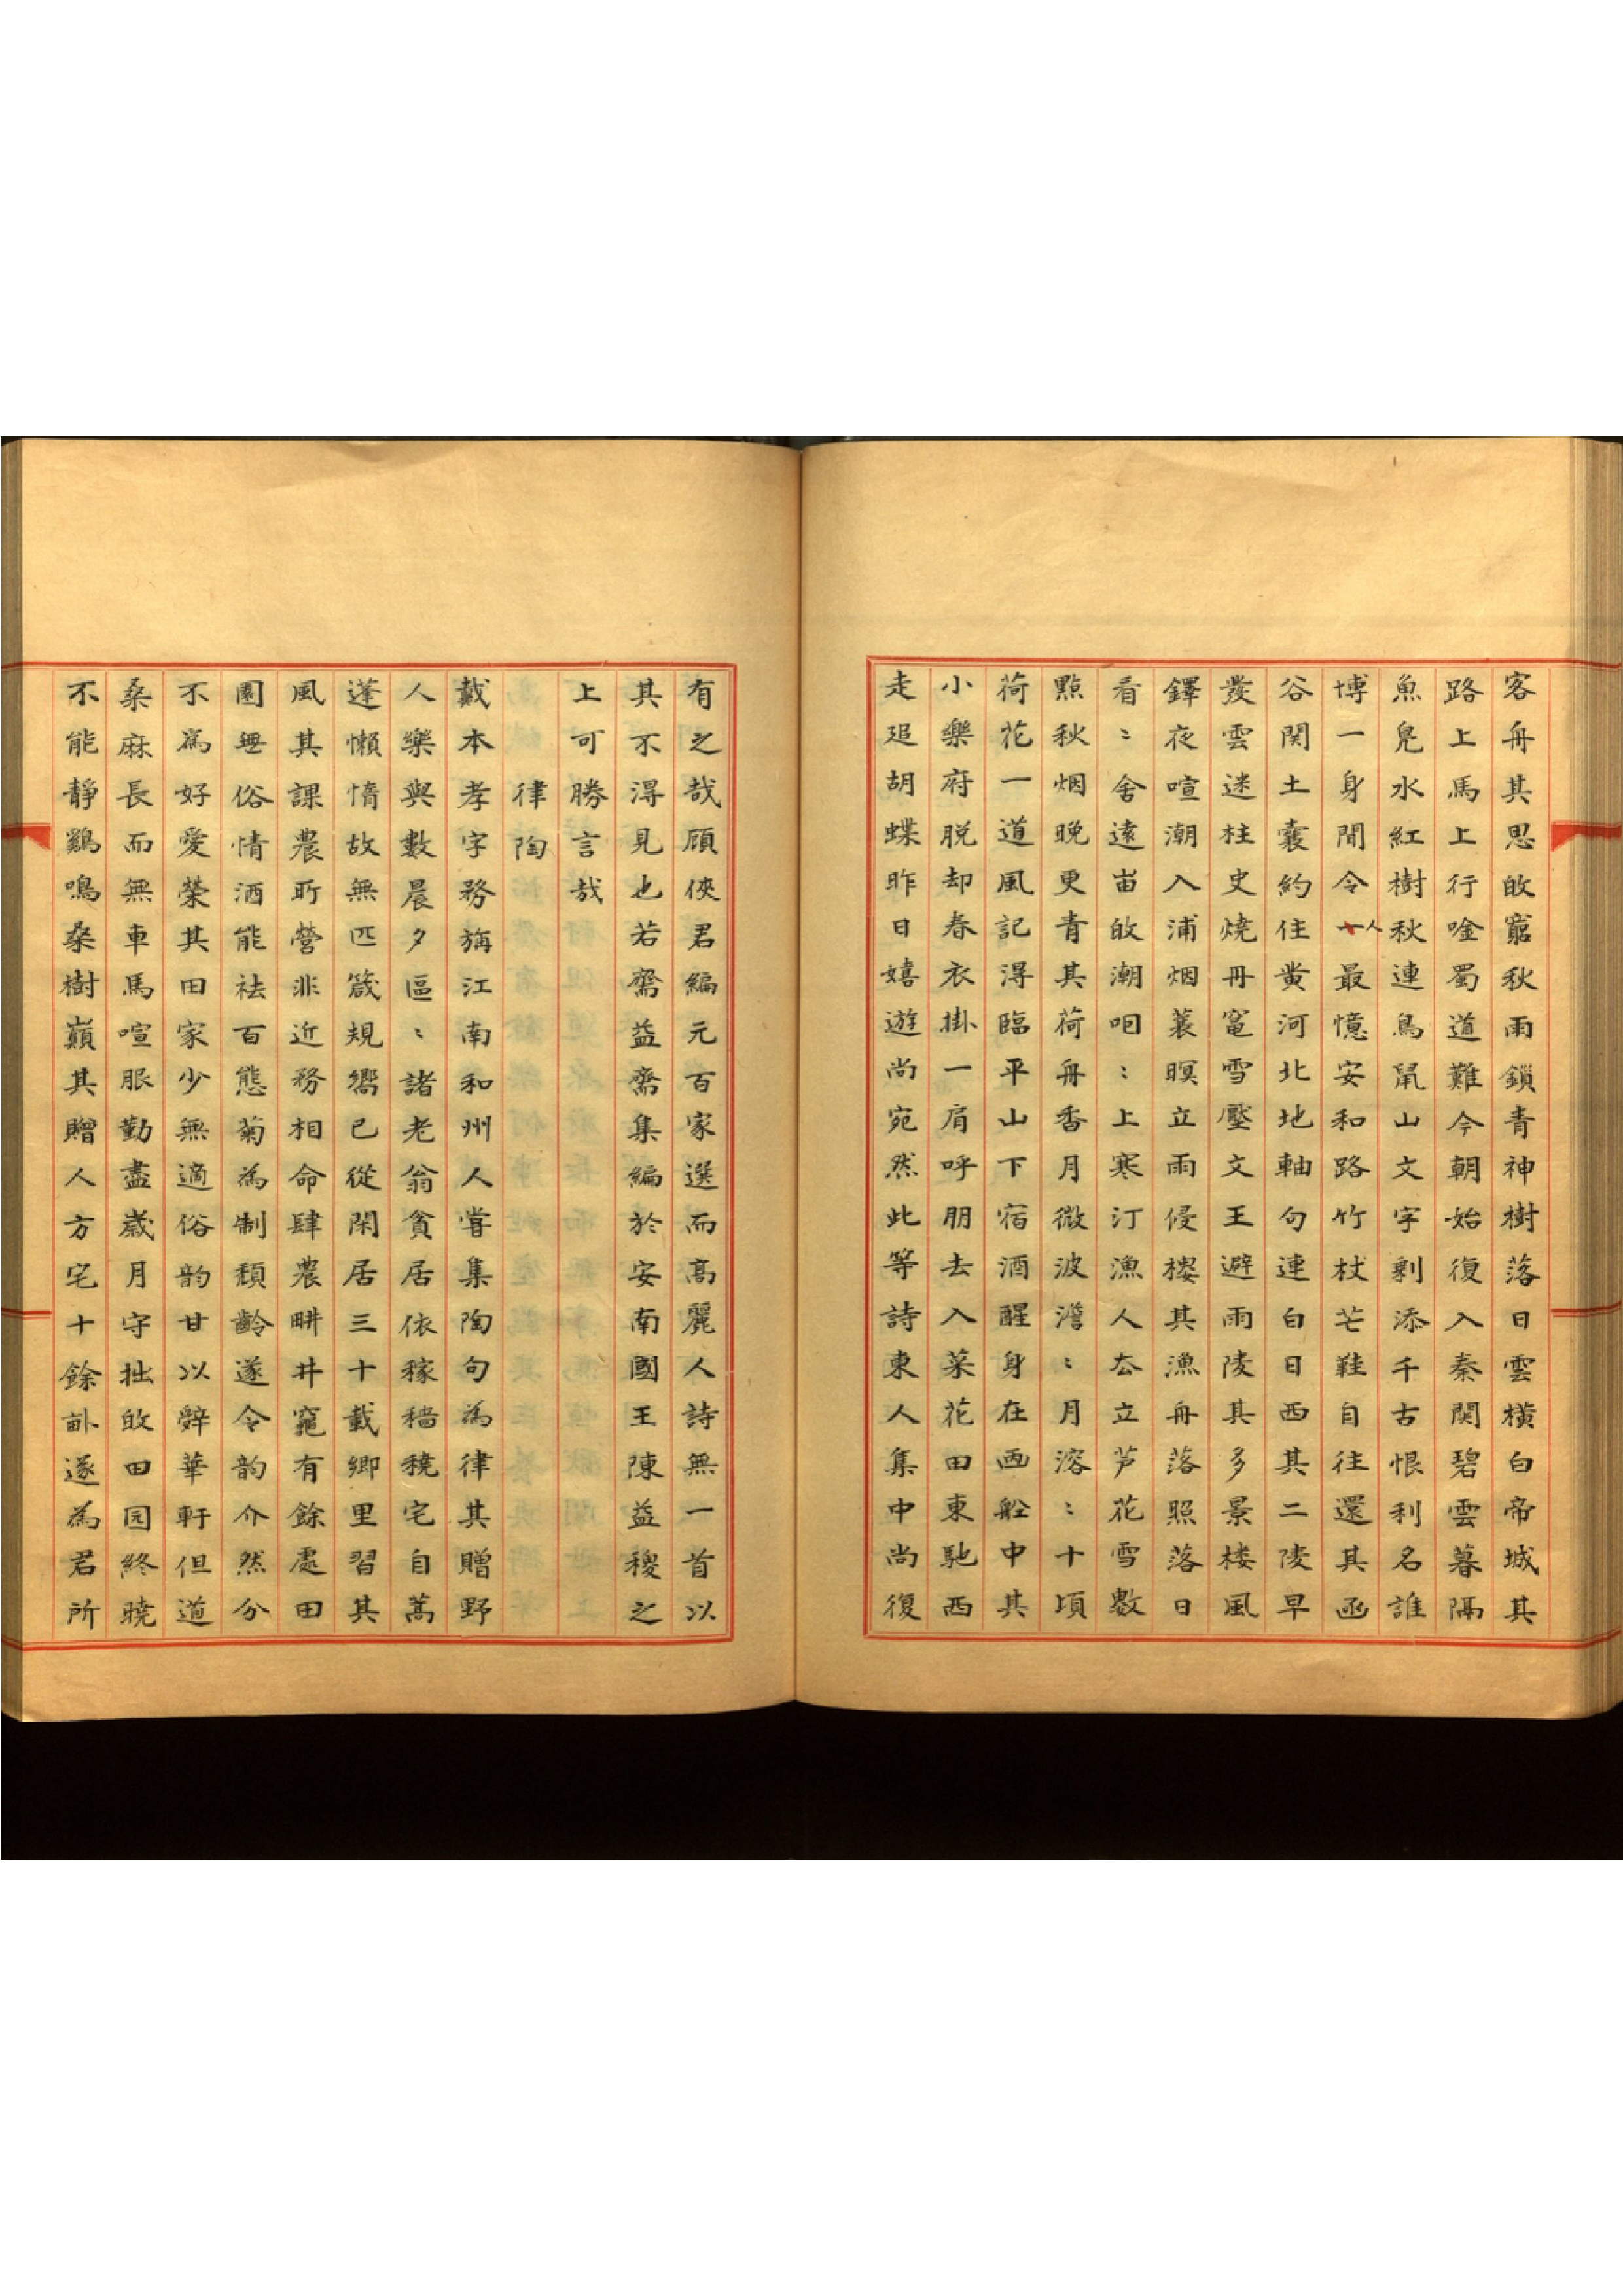 客舟其思敀竆秋雨鎖青神樹落日雲橫白帝城其
路上馬上行唫蜀道難今朝始復入秦関碧雲暮隔
魚鳧水紅樹秋連鳥䑕山文字剩添千古恨利名誰
博一身閒令人最憶安和路竹杖芒鞋自往還其凾
谷関土囊約住黄河北地軸句連白日西其二陵早
發雲迷柱史燒丹竈雪壓文王避雨陵其多景楼風
鐸夜喧潮入浦烟蓑暝立雨侵樓其漁舟落照落日
看〻舍遠峀敀潮㕶〻上寒汀漁人厺立芦花雪數
點秋烟晚更青其荷舟香月微波澹〻月溶〻十頃
荷花一道風記淂臨平山下宿酒醒身在画船中其
小樂府脱却春衣掛一肩呼朋去入菜花田東馳西
走𨒪胡蝶昨日嬉遊尚宛然此等詩東人集中尚復
有之哉顧俠君編元百家選而髙麗人詩無一首以
其不淂見也若齋益齋集編於安南國王陳益稷之
上可勝言哉
律陶
戴本孝字務旃江南和州人甞集陶句為律其贈野
人樂與數晨夕區〻諸老翁貧居依稼穡穘宅自蒿
蓬懶惰故無匹箴規嚮已從閑居三十載鄉里習其
風其課農所營非近務相命肆農畊井竈有餘處田
園無俗情酒能祛百態菊為制頹齡遂令韵介然分
不為好爱榮其田家少無適俗韵甘以辤華軒但道
桑麻長而無車馬喧服勤盡嵗月守拙敀田园終曉
不能靜鷄鳴桑樹巔其贈人方宅十餘畝遂為君所